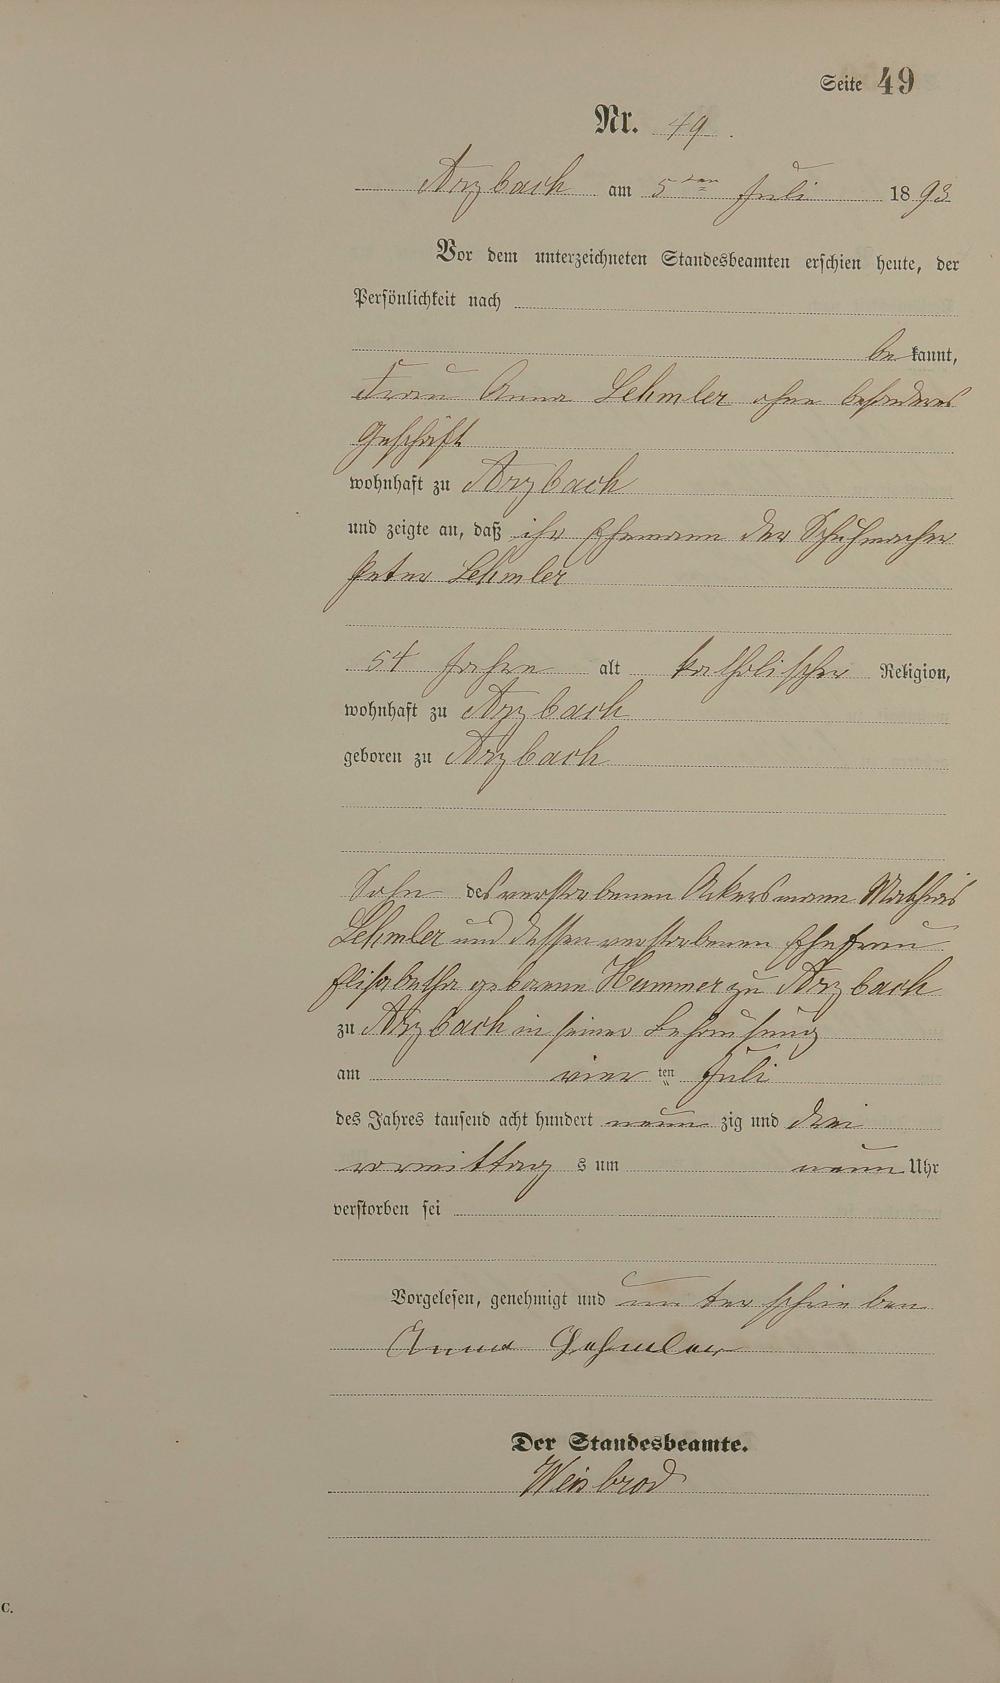 Seite 49
Nr. 49.
Arzbach am 5ten Juli 1893
Vor dem unterzeichneten Standesbeamten erschien heute, der
Persönlichkeit nach
be kannt,
Frau Anna Lehmler ohne besonderes
Geschäft
wohnhaft zu Arzbach
und zeigte an, daß ihr Ehemann der Schuhmacher
Peter Lehmler
54 Jahre alt katholischer Religion,
wohnhaft zu Arzbach
geboren zu Arzbach
Sohn des verstorbenen Ackersmann Mathias
Lehmler und dessen verstorbenen Ehefrau
Elisabetha geborene Hammer zu Arzbach
zu Arzbach in seiner Behausung
am vier ten Juli
des Jahres tausend acht hundert neun zig und drei
vormittag s um neun Uhr
verstorben sei
Vorgelesen, genehmigt und unterschrieben
Anna Lehmler
Der Standesbeamte.
Weisbrod
C.